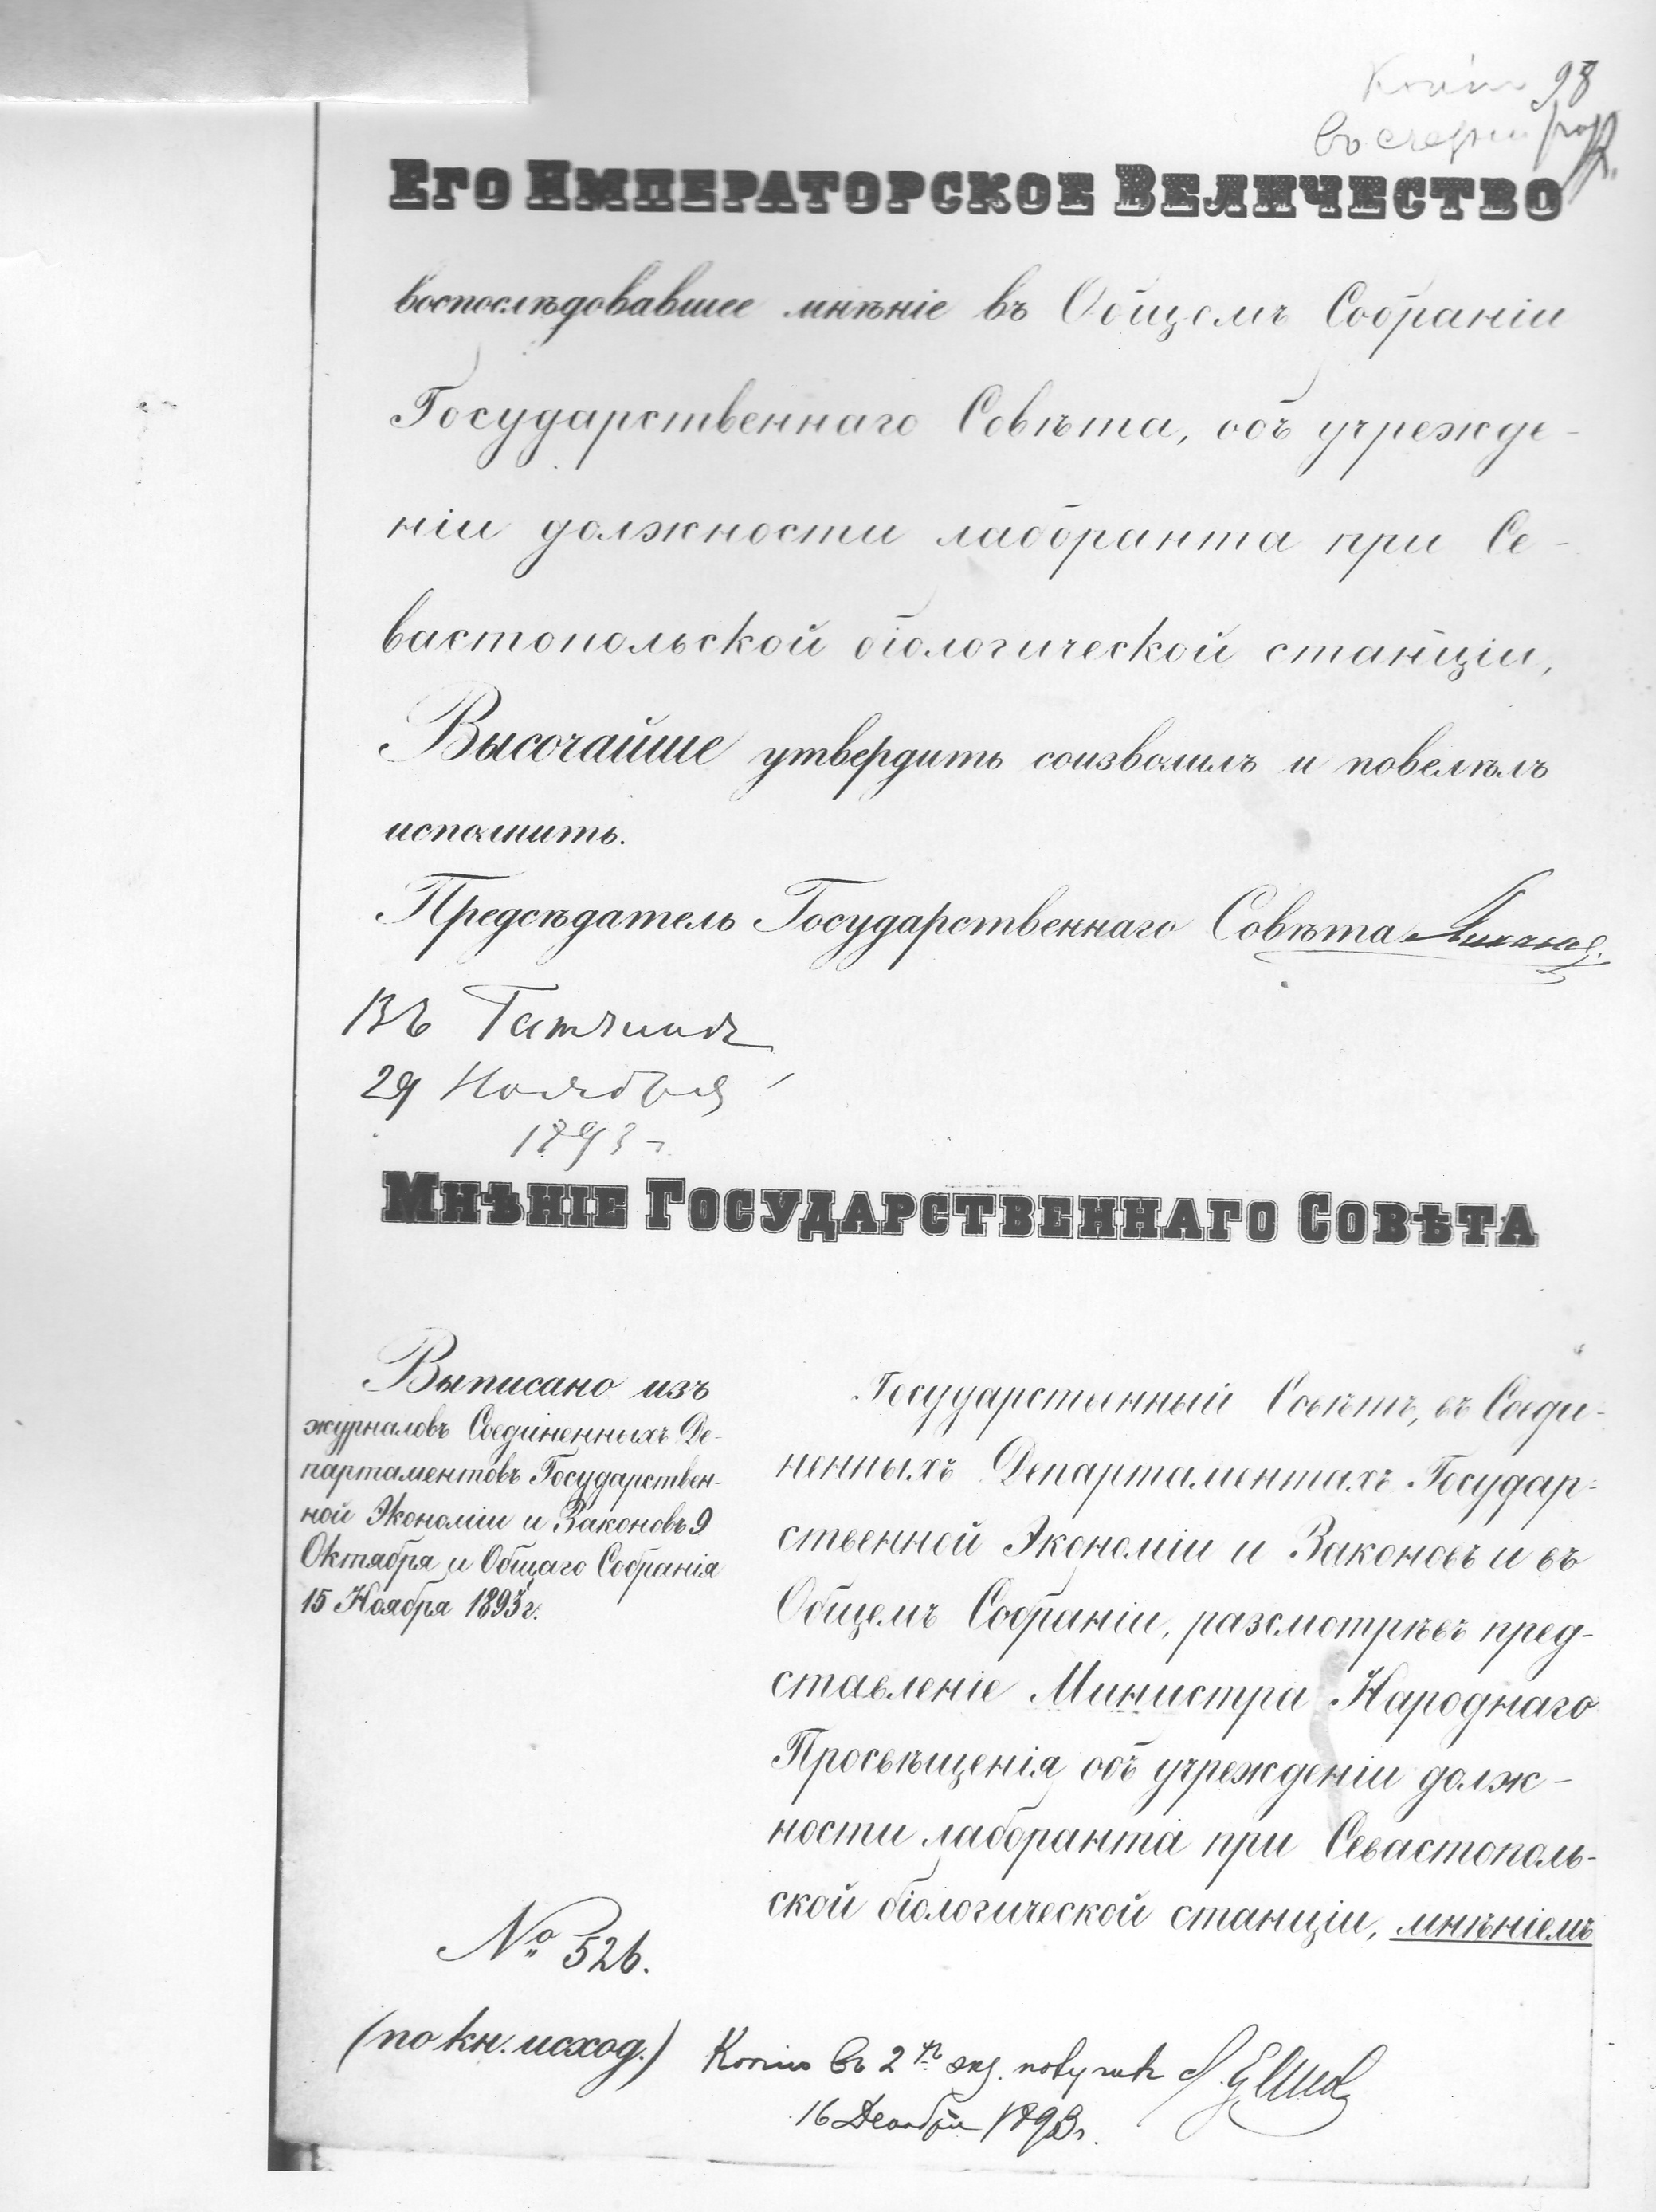 98
ЕГО ИМПЕРАТОРСКОЕ ВЕЛИЧЕСТВО
воспослѣдовавшее мнѣніе въ Общемъ Собраніи
Государственнаго Совѣта, объ учрежде-
ніи должности лаборанта при Се-
вастопольской біологической станціи,
Высочайше утвердить соизволилъ и повелѣлъ
исполнить.
Предсѣдатель Государственнаго Совѣта Михаилъ.
Въ Гатчинѣ
29 Ноября
1893 г.
МНѢНІЕ ГОСУДАРСТВЕННАГО СОВѢТА
Выписано изъ
журналовъ Соединенныхъ Де-
партаментовъ Государствен-
ной Экономіи и Законовъ 9
Октября и Общаго Собранія
15 Ноября 1893 г.
Государственный Совѣтъ, въ Соеди-
ненныхъ Департаментахъ Государ-
ственной Экономіи и Законовъ и въ
Общемъ Собраніи, разсмотрѣвъ пред-
ставленіе Министра Народнаго
Просвѣщенія объ учрежденіи долж-
ности лаборанта при Севастополь-
ской біологической станціи, мнѣніемъ
№ 526.
(по кн. исход.)
Копію въ 2хъ экз. получилъ
16 Декабря 1893 г.